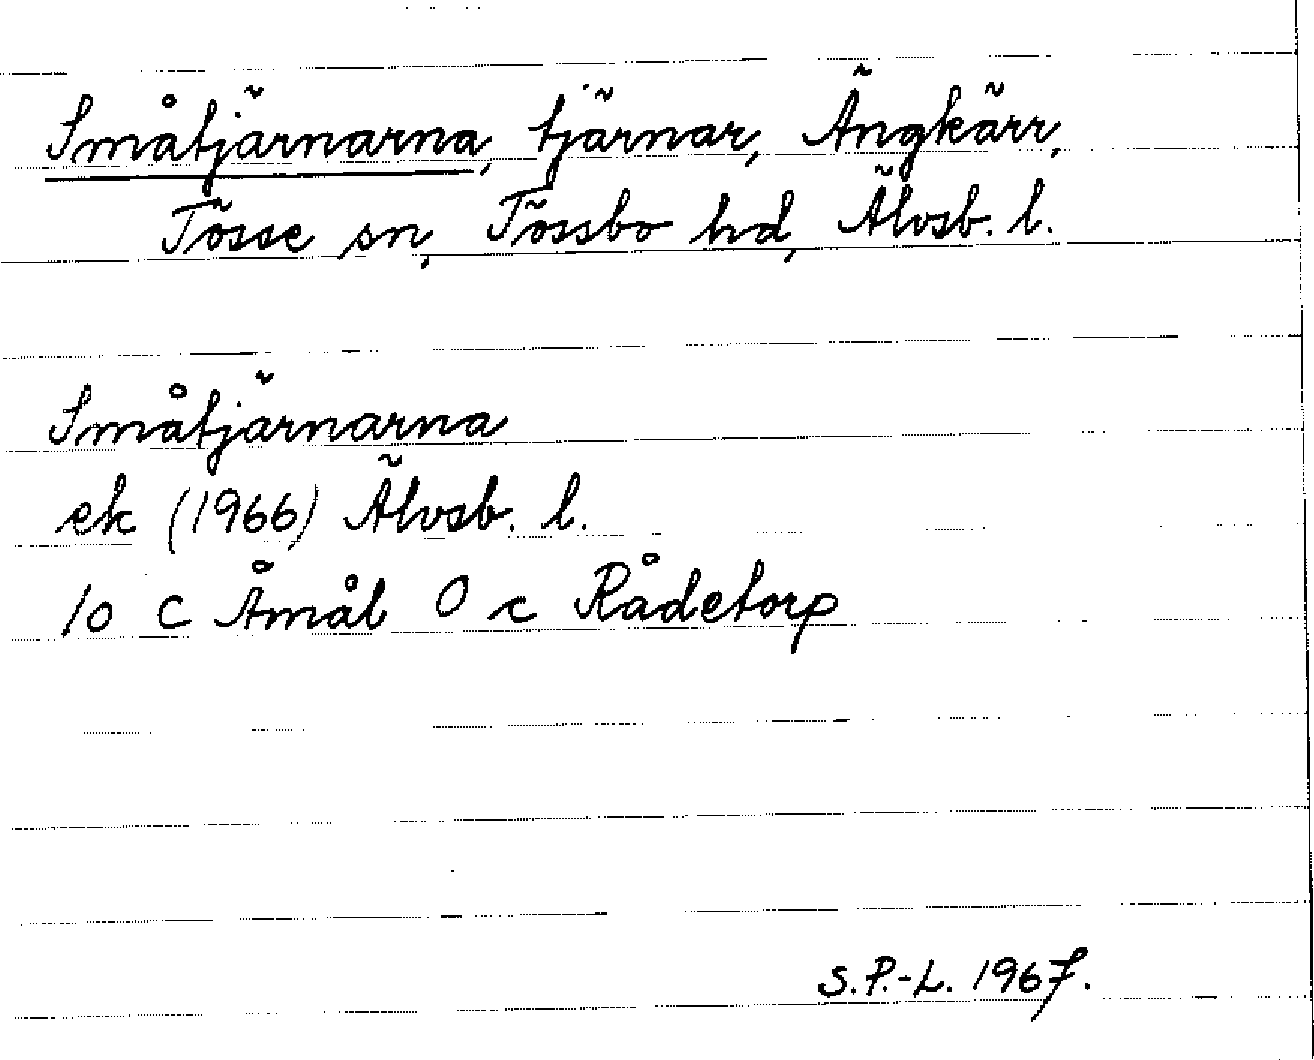 Småtjärnarna, tjärnar, Ängkärr,
Tösse sn, Tössbo hd, Älvsb. l.
Småtjärnarna
ek (1966) Älvsb. l.
10 C Åmål O c Rådetorp
S.P.-L. 1967.